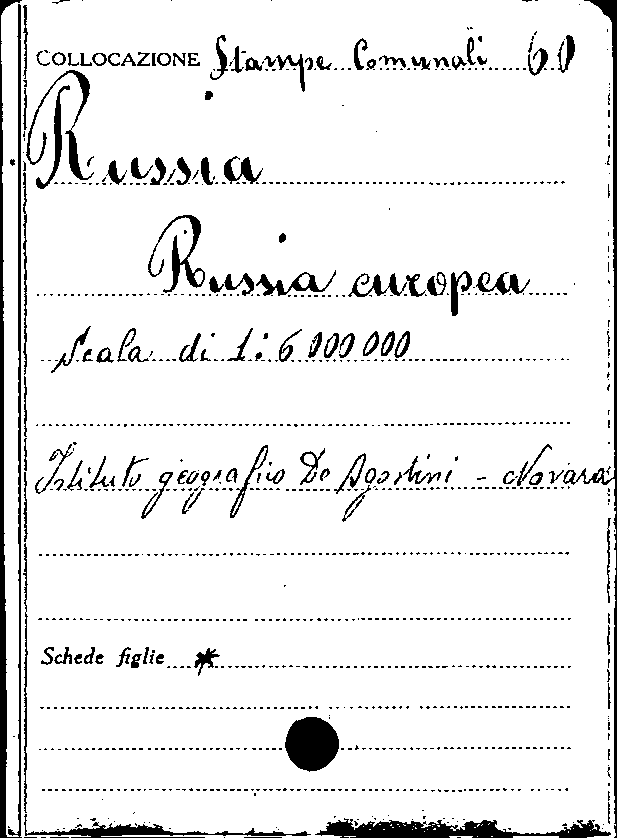 COLLOCAZIONE Stampe Comunali 60
Russia
Russia europea
Scala di 1:6000000
Istituto geografico De Agostini - Novara
Schede figlie *